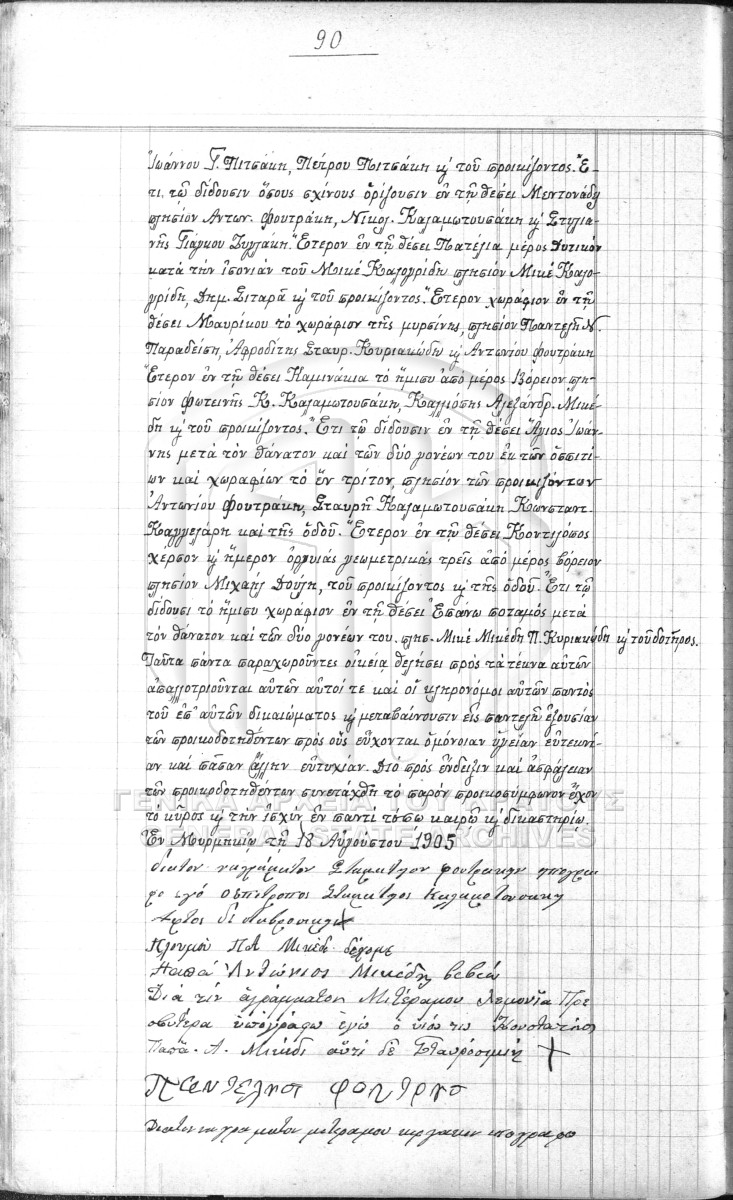 90
Ἰωάννου Γ. Πιτσάκη, Πέτρου Πιτσάκη κ' τοῦ προικίζοντος. Ἔ-
τι τῷ δίδουσιν ὅσους σχίνους ὁρίζουσιν ἐν τῇ θέσει Μεντονάδη
πλησίον Αντων. Φουτράκη, Νικολ. Καλαμωτουσάκη κ' Στυλια-
νῆς Γιάγκου Ζυλλάκη. Ἕτερον ἐν τῇ θέσει Πατέλια μέρος δυτικὸν
κατὰ τὴν ἰσονιάν τοῦ Μικὲ Καλογρίδη πλησίον Μικὲ Καλο-
γρίδη, Δημ. Σιταρᾶ κ' τοῦ προικίζοντος. Ἕτερον χωράφιον ἐν τῇ
θέσει Μαυρίκου τὸ χωράφιον τῆς μυρσίνης, πλησίον Παντελῆ Ν.
Παραδείση, Ἀφροδίτης Σταυρ. Κυριακώδη κ' Αντωνίου Φουτράκη
Ἕτερον ἐν τῇ θέσει Καμινάκια τὸ ἥμισυ ἀπὸ μέρος Βόρειον πλη-
σίον Φωτεινῆς Κ. Καλαμωτουσάκη, Καλλιόπης Αλεξάνδρ. Μικέ-
δη κ' τοῦ προικίζοντος. Ἔτι τῷ δίδουσιν ἐν τῇ θέσει Ἅγιος Ἰωάν-
νης μετὰ τὸν θάνατον καὶ τῶν δύο γονέων του ἐκ τῶν ὁσπιτί-
ων καὶ χωραφίων τὸ ἓν τρίτον, πλησίον τῶν προικιζόντων
Ἀντωνίου Φουτράκη, Σταυρῆ Καλαμωτουσάκη Κωνσταντ.
Καγγελάρη καὶ τῆς ὁδοῦ. Ἕτερον ἐν τῇ θέσει Κοντιλόπος
χέρσον κ' ἥμερον ὀργυιάς γεωμετρικάς τρεῖς ἀπὸ μέρος βόρειον
πλησίον Μιχαὴλ Δούλη, τοῦ προικίζοντος κ' τῆς ὁδοῦ. Ἔτι τῷ
δίδουσι τὸ ἥμισυ χωράφιον ἐν τῇ θέσει Ἐπάνω ποταμός μετὰ
τὸν θάνατον καὶ τῶν δύο γονέων του. πλησ. Μικὲ Μικέδη Π. Κυριακώδη κ' τοῦ δοτῆρος.
Ταῦτα πάντα παραχωροῦντες οἰκείᾳ θελήσει πρὸς τὰ τέκνα αὐτῶν
ἀπαλλοτριοῦνται αὐτῶν αὐτοί τε καὶ οἱ κληρονόμοι αὐτῶν παντὸς
τοῦ ἐπ' αὐτῶν δικαιώματος κ' μεταβαίνουσιν εἰς παντελῆ ἐξουσίαν
τῶν προικοδοτηθέντων πρὸς οὓς εὔχονται ὁμόνοιαν ὑγείαν εὐτεκνί-
αν καὶ πᾶσαν ἄλλην εὐτυχίαν. Διὸ πρὸς ἔνδειξιν καὶ ἀσφάλειαν
τῶν προικοδοτηθέντων συνετάχθη τὸ παρὸν προικοσύμφωνον ἔχον
τὸ κῦρος κ' τὴν ἰσχὺν ἐν παντὶ τόπῳ καιρῷ κ' δικαστηρίῳ.
Ἐν Μυρμηκίῳ τῇ 18 Αὐγούστου 1905
διατον αγραματον Σταματιον φουτρακην υπογρα
φο εγό ο επιτροπος Σταματιος Καλαμοτουσακη
αφτος δε σταβροσιμιο X
Πλουμου ΠΑ Μικέδι δέχομε
Παπά Ἀντώνιος Μικέδης βεβεῶ
Διὰ τὶν ἀγράμματον Μιτέραμου Λεμονῖα Πρε
σβυτερα ὑπογράφω ἐγώ ὁ υἱός της Κονσταντῖνος
Παπᾶ. Α. Μικέδι αὔτι δὲ σταυρόσιμιη +
Παντελησ φουτρησ
Διατην αγραματον μετεραμου υπογραφο
ΓΕΝΙΚΑ ΑΡΧΕΙΑ ΤΟΥ ΚΡΑΤΟΥΣ
GENERAL STATE ARCHIVES